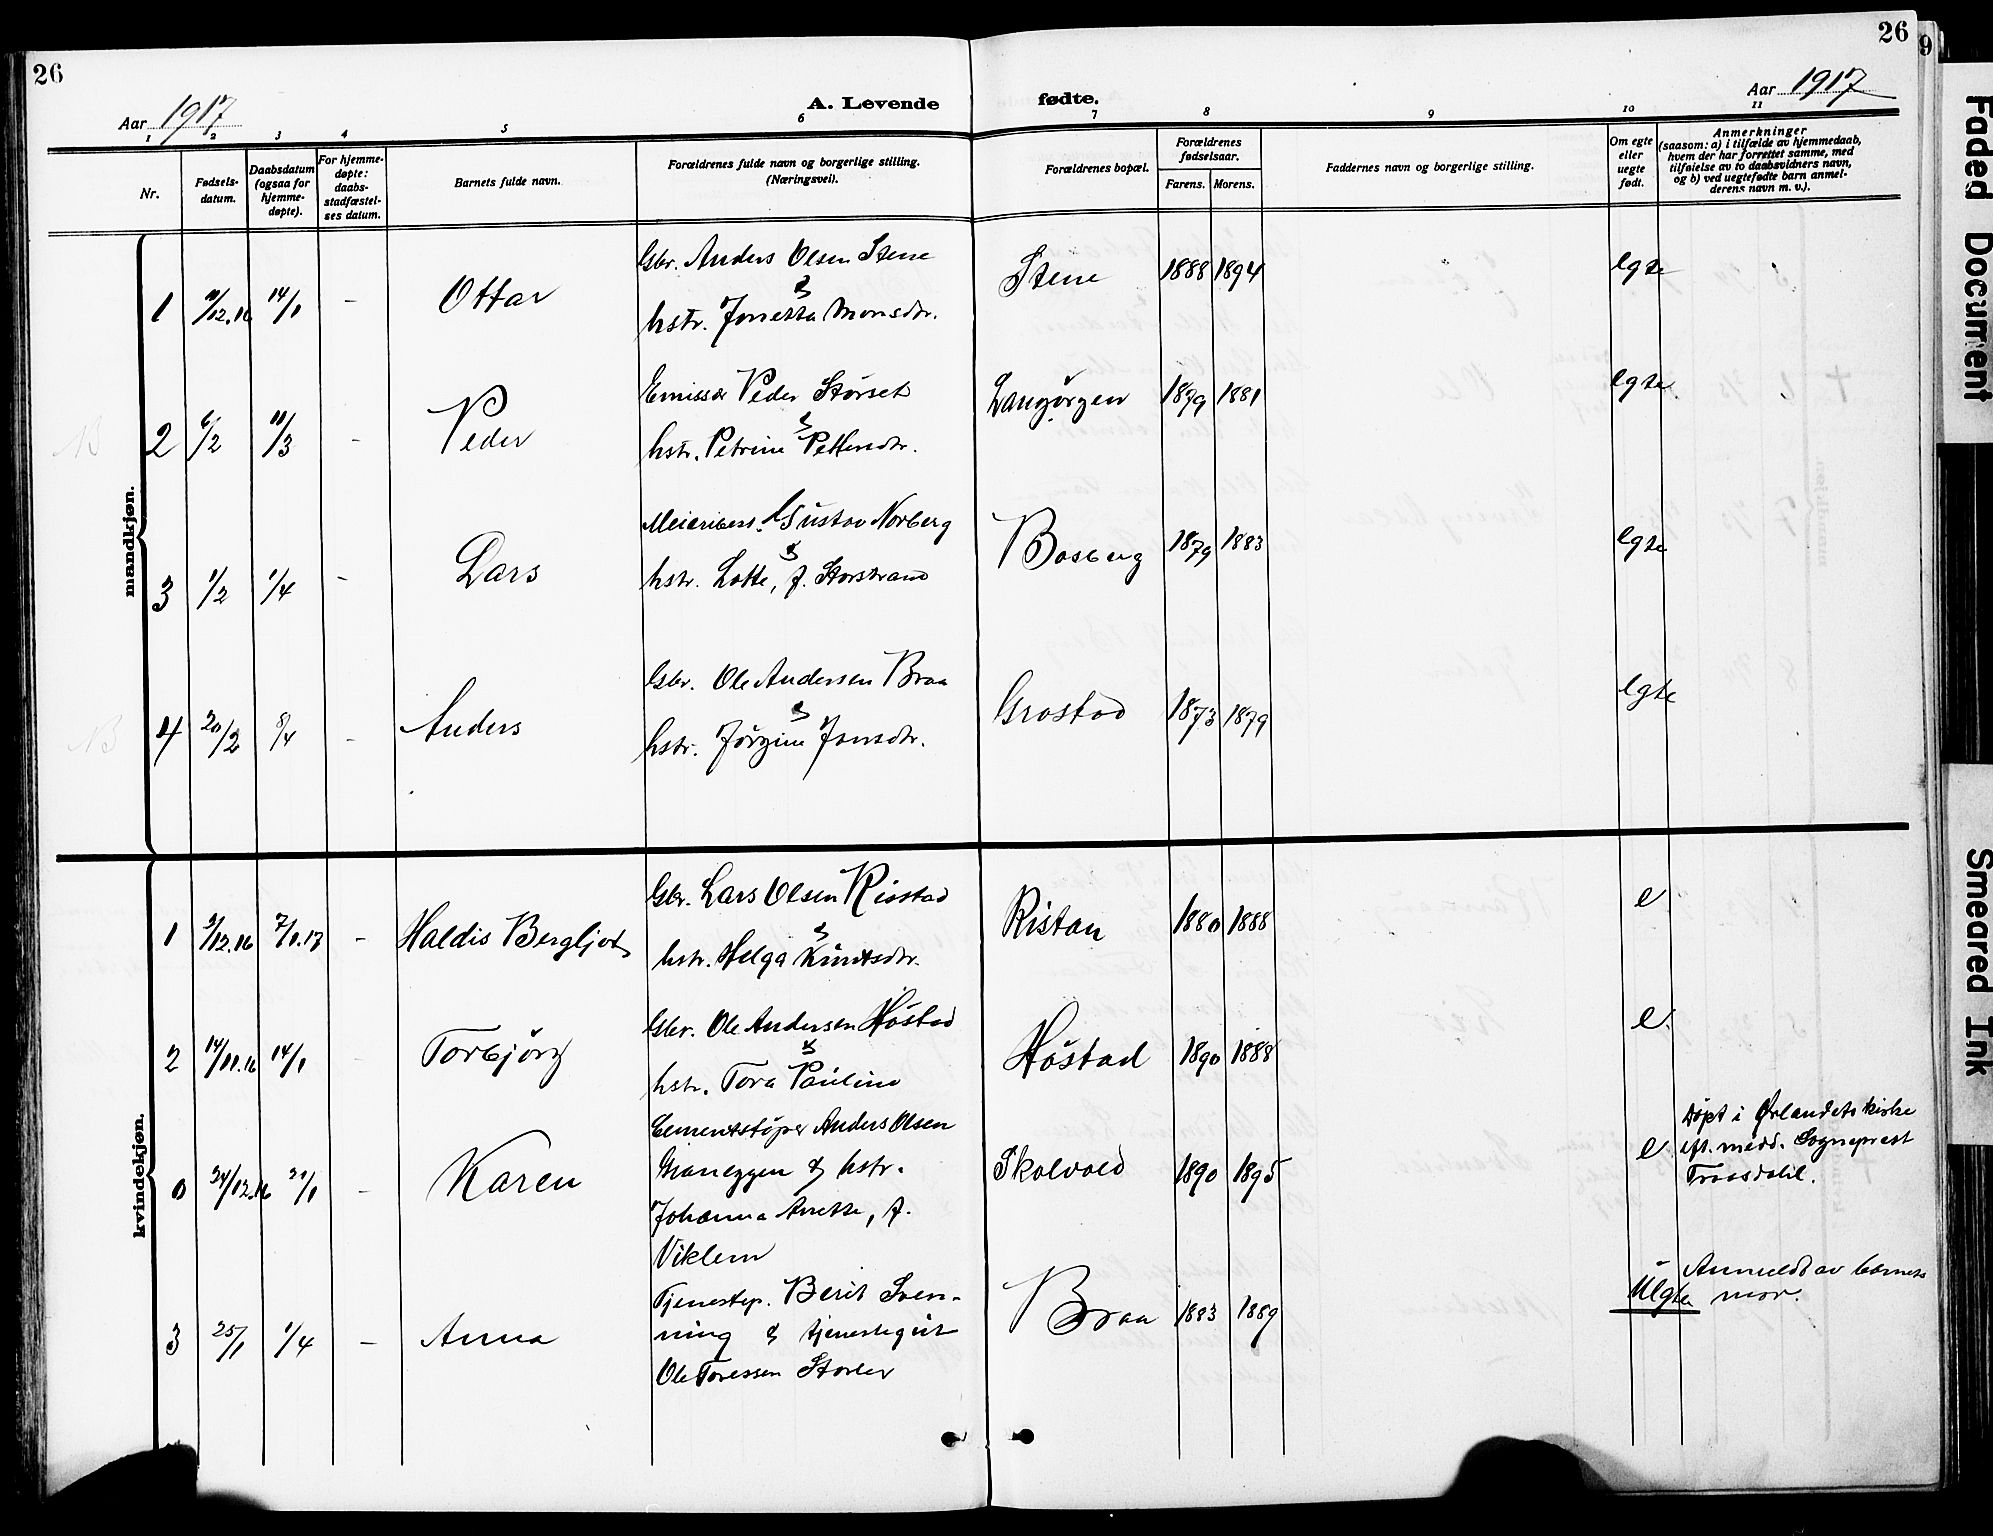 26
26
9
Aar 1917
A. Levende fødte.
Aar 1917
1 2 3 4 5 6 7 8 9 10 11
Nr.
Fødsels-
datum.
Daabsdatum
(ogsaa for
hjemme-
døpte).
For hjemme-
døpte:
daabs-
stadfæstel-
ses datum.
Barnets fulde navn.
Forældrenes fulde navn og borgerlige stilling.
(Næringsvei).
Forældrenes bopæl.
Forældrenes
fødselsaar.
Farens. Morens.
Faddernes navn og borgerlige stilling.
Om egte
eller
uegte
født.
Anmerkninger
(saasom: a) i tilfælde av hjemmedaab,
hvem der har forrettet samme, med
tilføielse av to daabsvidners navn,
og b) ved uegtefødte barn anmel-
derens navn m. v.).
mandkjøn.
1 /12.16 14/1 - Ottar
Gbr. Anders Olsen Stene
&
hstr. Jonetta Monsdtr.
Stene 1888 1894 egte
B 2 6/2 11/3 - Peder
Emissær Peder Størset
&
hstr. Petrine Pettersdtr.
Langørgen 1879 1881 egte
3 1/2 1/4 - Lars
Meieribest. Gustav Norberg
&
hstr. Lotte, f. Storstrand
Bosberg 1879 1883 egte
B 4 20/2 8/4 - Anders
Gbr. Ole Andersen Braa
&
hstr. Jørgine Jonsdtr.
Grostad 1873 1879 egte
kvindekjøn.
1 9/12.16 7/1.17 - Haldis Bergljot
Gbr. Lars Olsen Ristad
&
hstr. Helga Knutsdtr.
Ristan 1880 1888 e
2 14/11.16 14/1 - Torbjørg
Gbr. Ole Andersen Høstad
&
hstr. Tora Pauline
Høstad 1890 1888 e.
0 24/12.16 21/1 - Karen
Cementstøper Anders Olsen
& hstr.
Johanna Anette, f.
Viklem
Skolvold 1890 1895 e
Døpt i Ørlandets kirke
eft. medd. Sogneprest
Traasdahl.
3 25/1 1/4 - Anna
Tjenestep. Berit Sven-
ning & tjenestegut
Ole Toressen Storler
Braa 1883 1889 Uegte
Anmeldt av barnets
mor.
Faded Document
Smeared Ink